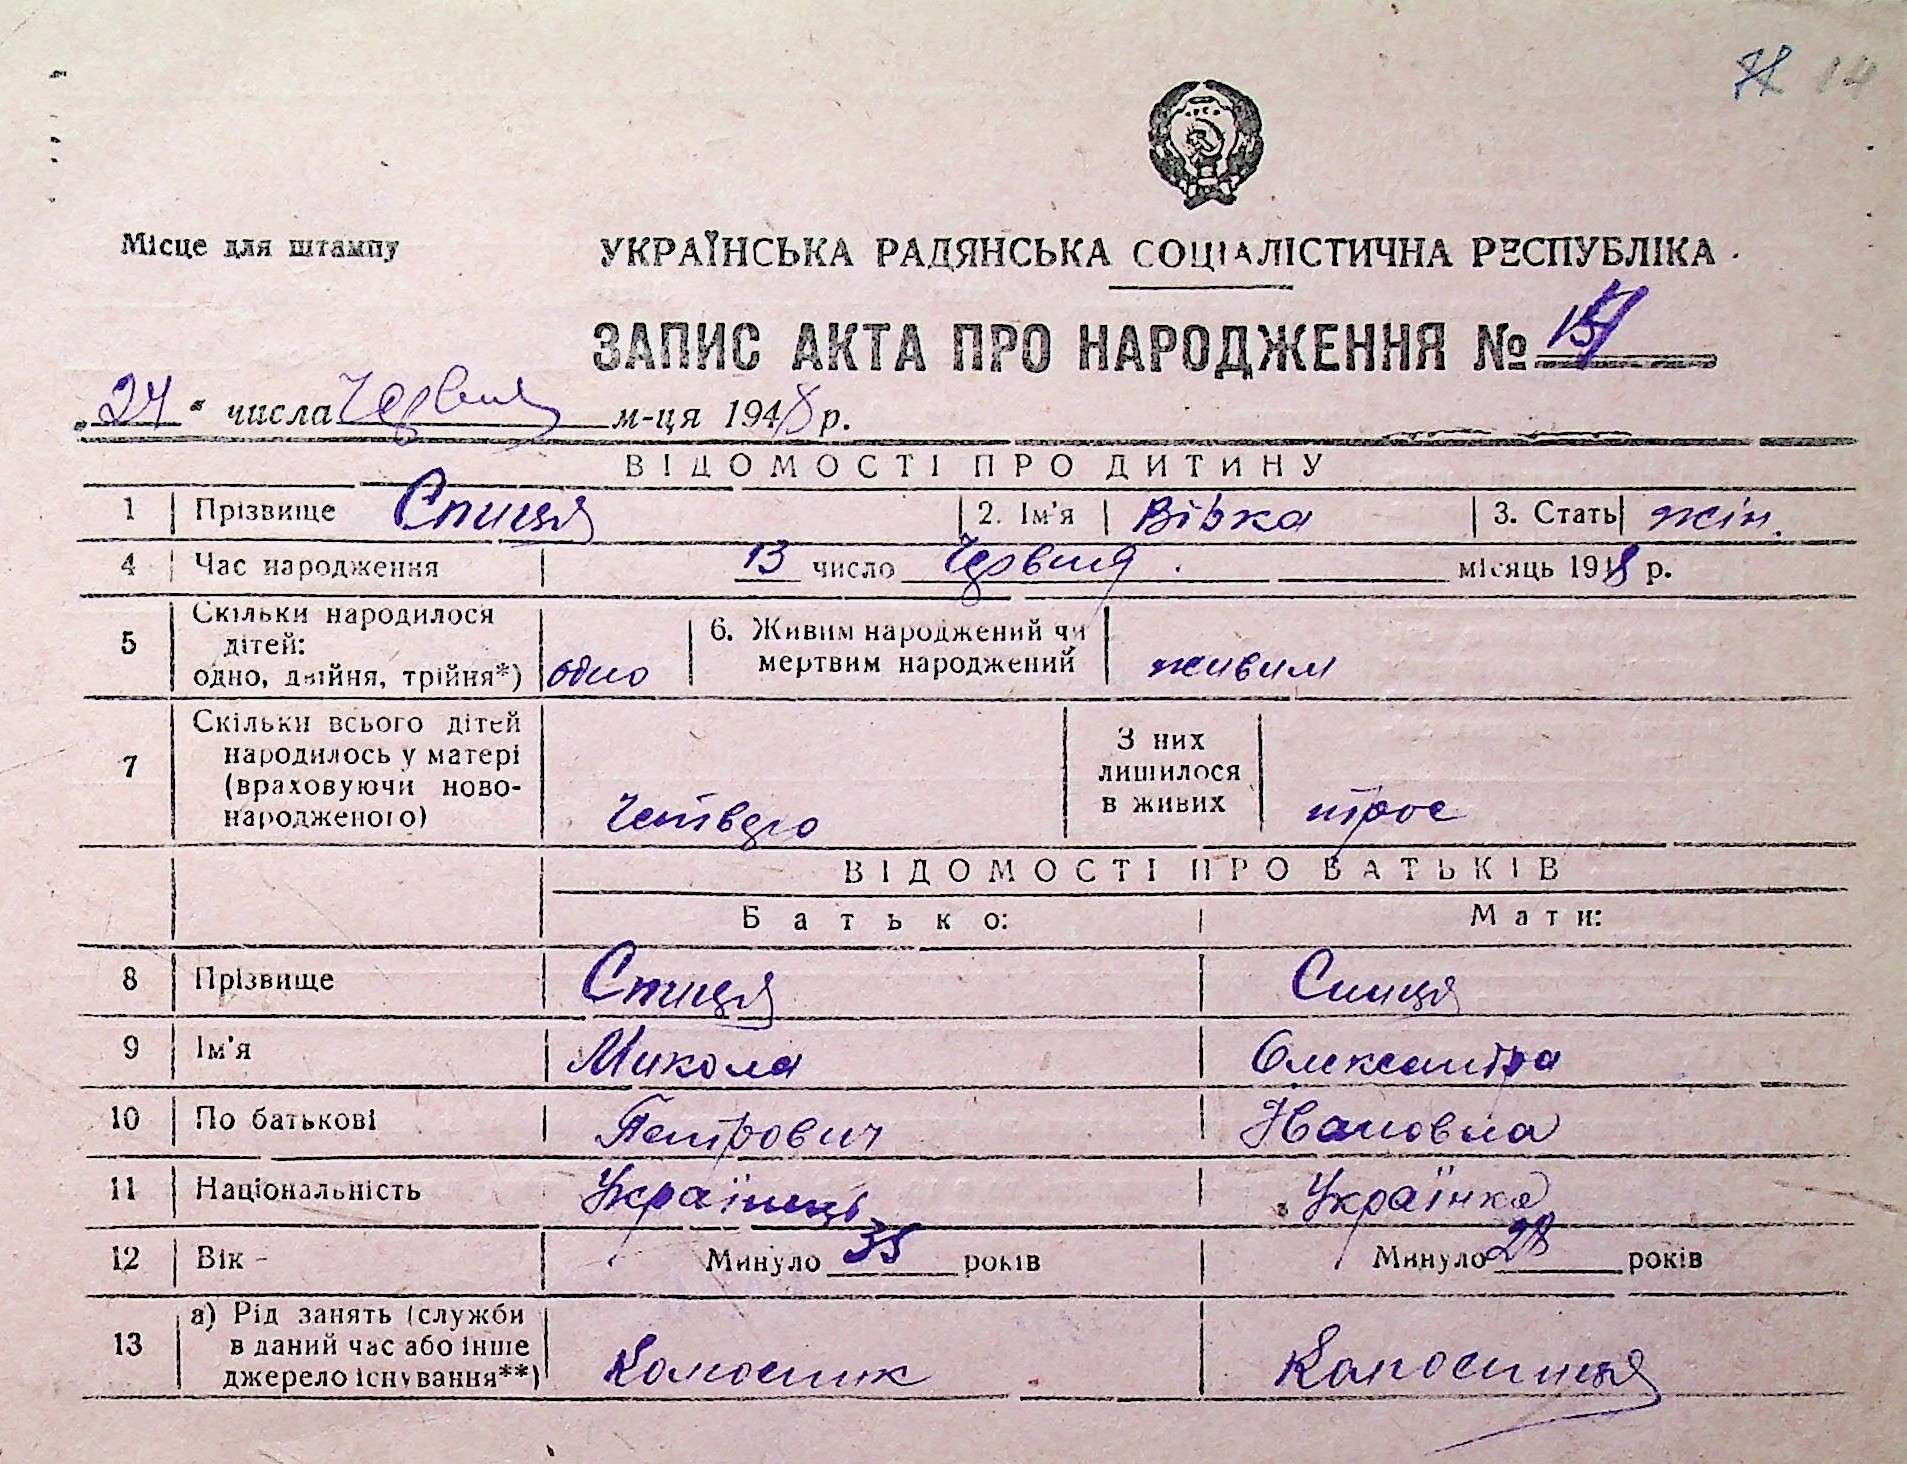 Місце для штампу
УКРАЇНСЬКА РАДЯНСЬКА СОЦІАЛІСТИЧНА РЕСПУБЛІКА
ЗАПИС АКТА ПРО НАРОДЖЕННЯ №
"24" числа Червня м-ця 1948 р.
ВІДОМОСТІ ПРО ДИТИНУ
1 Прізвище Спиця 2. Ім'я Вівка 3. Стать жін.
4 Час народження 13 число Червня місяць 1948 р.
5 Скільки народилося
дітей:
одно, двійня, трійня*) одно
6. Живим народжений чи
мертвим народжений живим
7 Скільки всього дітей
народилось у матері
(враховуючи ново-
народженого) Четверо
З них
лишилося
в живих троє
ВІДОМОСТІ ПРО БАТЬКІВ
Батько: Мати:
8 Прізвище Спиця Спиця
9 Ім'я Микола Олександра
10 По батькові Петрович
11 Національність Українець Українка
12 Вік - Минуло 35 років Минуло 28 років
13 а) Рід занять (служби
в даний час або інше
джерело існування**) Колгоспник Колгоспниця